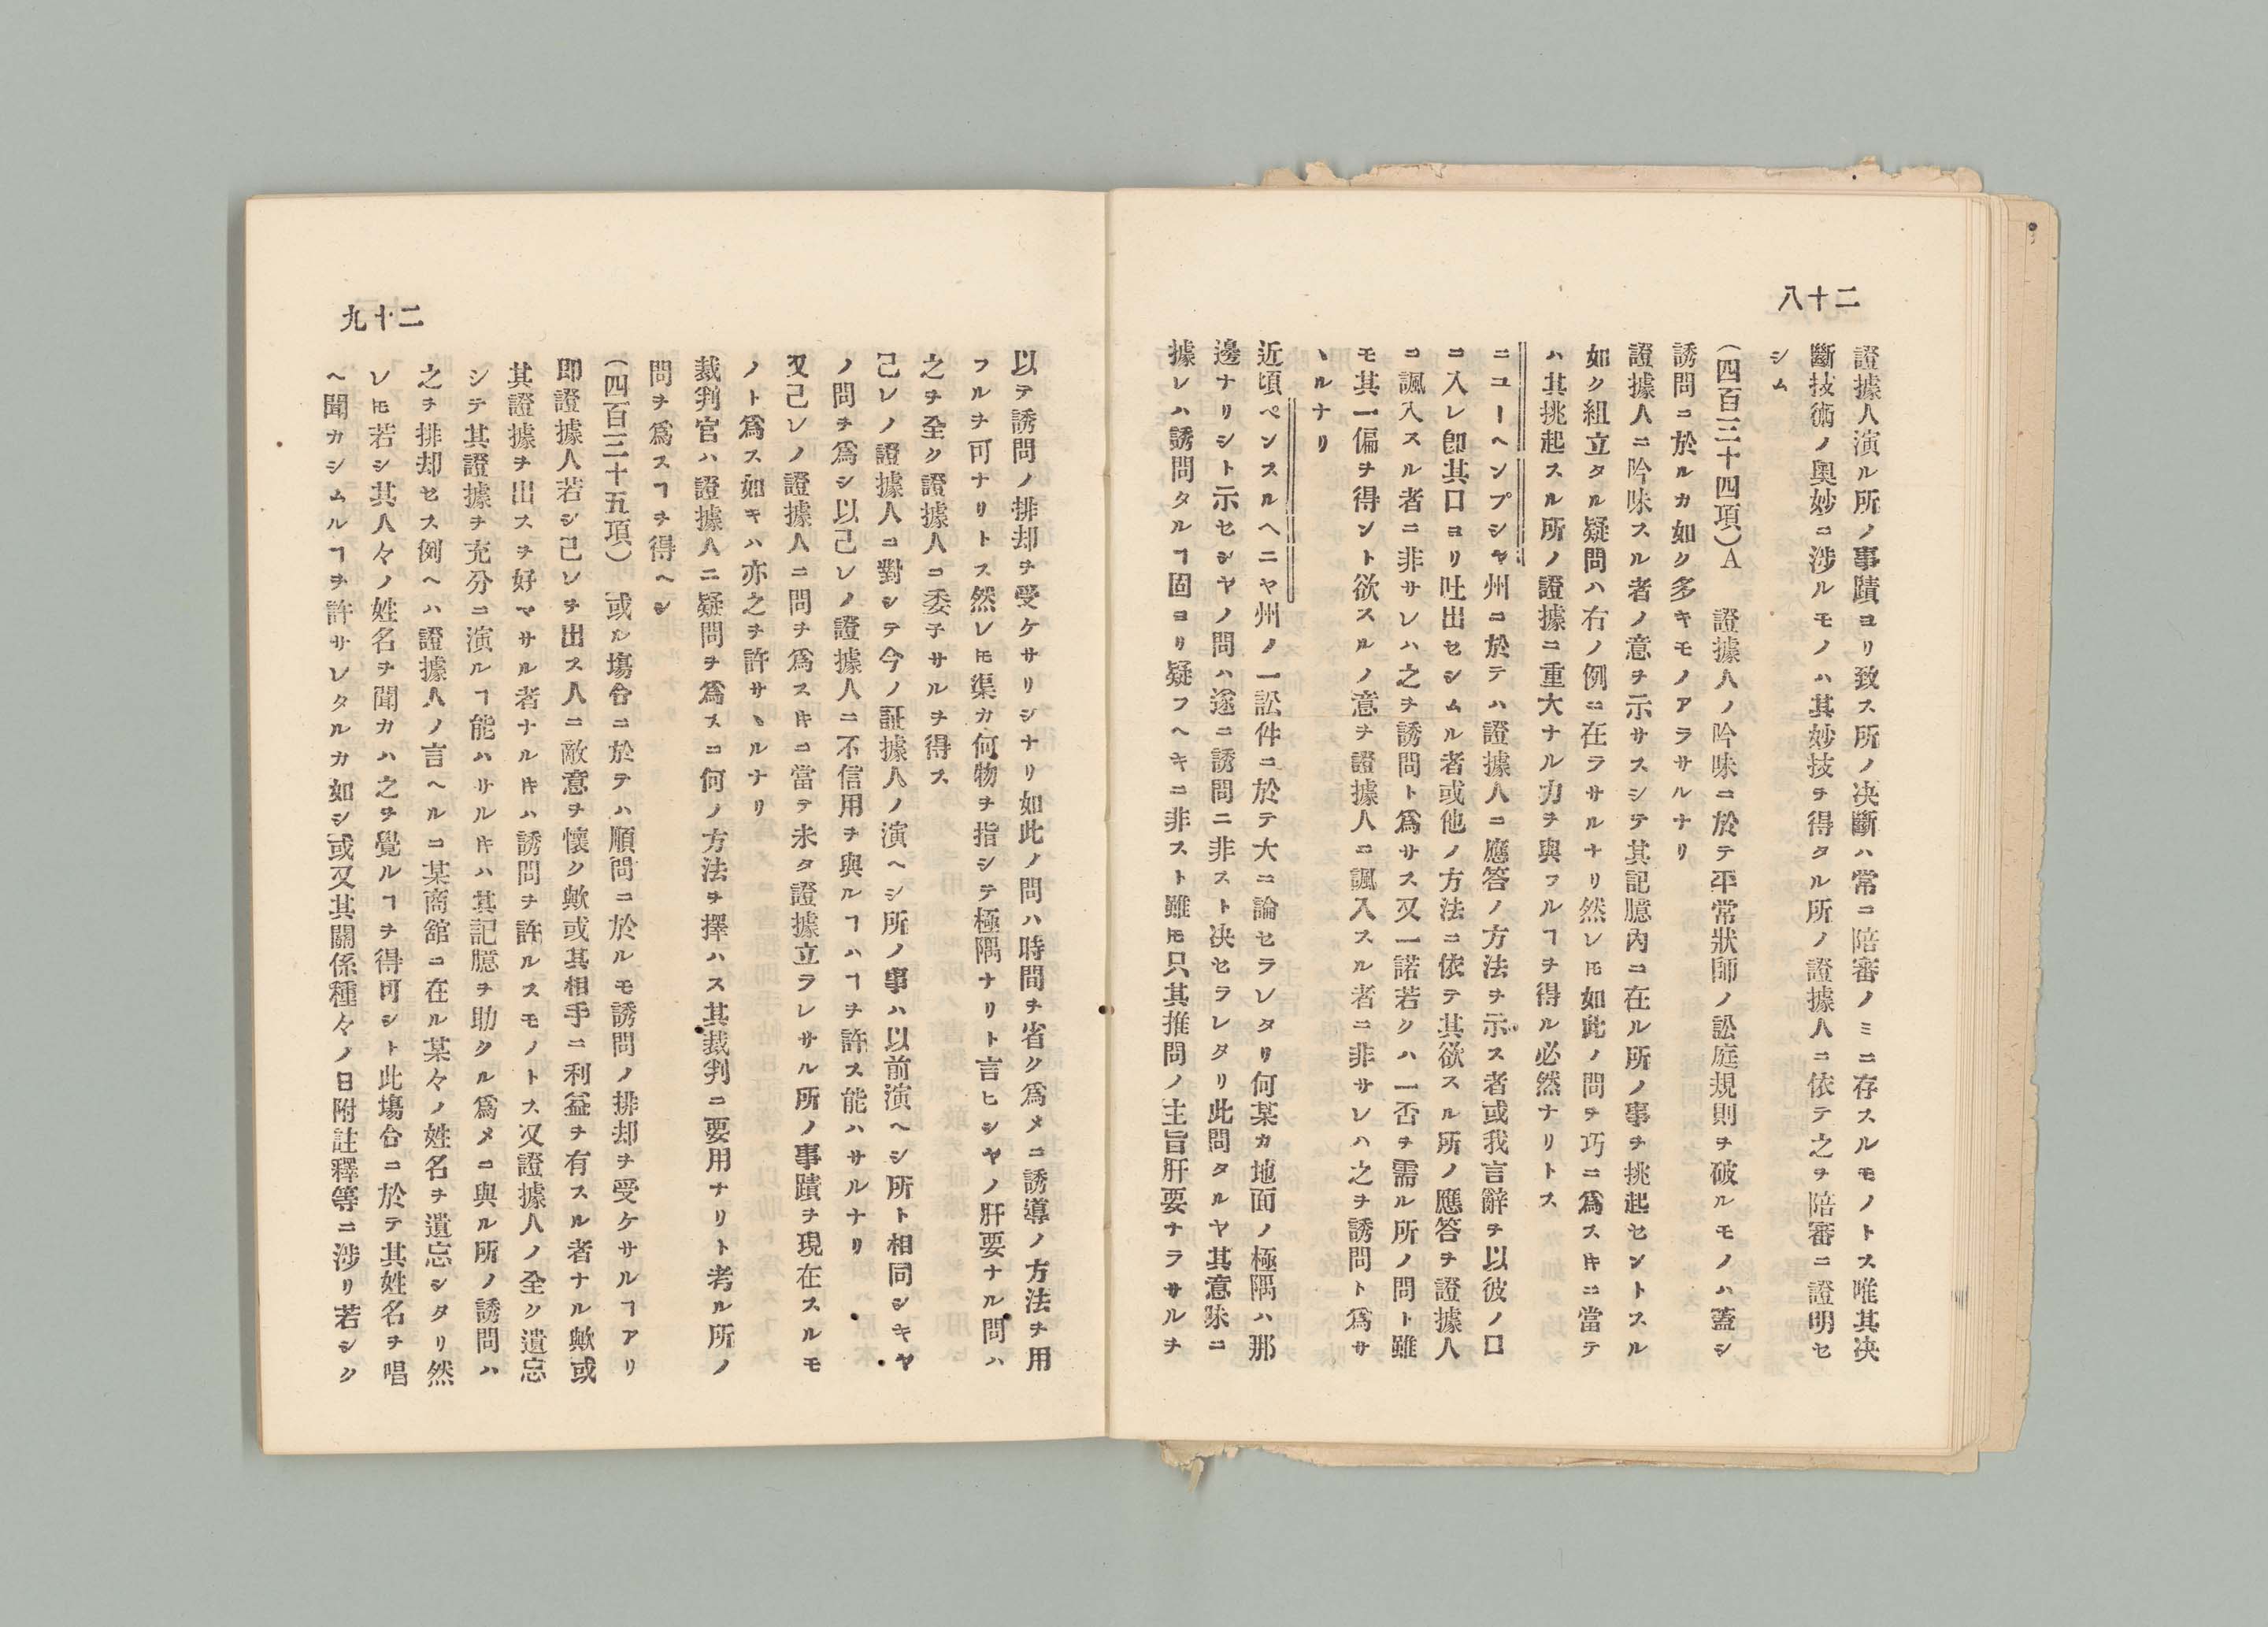 二十八
證據人演ル所ノ事蹟ヨリ致ス所ノ决斷ハ常ニ陪審ノミニ存スルモノトス唯其决
斷技術ノ奧妙ニ涉ルモノハ其妙技ヲ得タル所ノ證據人ニ依テ之ヲ陪審ニ證明セ
シム
(四百三十四項)A 證據人ノ吟味ニ於テ平常狀師ノ訟庭規則ヲ破ルモノハ蓋シ
誘問ニ於ルカ如ク多キモノアラサルナリ
證據人ニ吟味スル者ノ意ヲ示サスシテ其記臆內ニ在ル所ノ事ヲ挑起セントスル
如ク組立タル疑問ハ右ノ例ニ在ラサルナリ然レ𪜈如此ノ問ヲ巧ニ爲スキニ當テ
ハ其挑起スル所ノ證據ニ重大ナル力ヲ與フルヿヲ得ル必然ナリトス
ニユーヘンプシヤ州ニ於テハ證據人ニ應答ノ方法ヲ示ス者或我言辭ヲ以彼ノ口
ニ入レ卽其口ヨリ吐出セシムル者或他ノ方法ニ依テ其欲スル所ノ應答ヲ證據人
ニ諷入スル者ニ非サレハ之ヲ誘問ト爲サス又一諾若クハ一否ヲ需ル所ノ問ト雖
モ其一偏ヲ得ント欲スルノ意ヲ證據人ニ諷入スル者ニ非サレハ之ヲ誘問ト爲サ
ヽルナリ
近頃ペンスルヘニヤ州ノ一訟件ニ於テ大ニ論セラレタリ何某カ地面ノ極隅ハ那
邊ナリシト示セシヤノ問ハ遂ニ誘問ニ非スト决セラレタリ此問タルヤ其意味ニ
據レハ誘問タルヿ固ヨリ疑フヘキニ非スト雖𪜈只其推問ノ主旨肝要ナラサルヲ
二十九
以テ誘問ノ排却ヲ受ケサリシナリ如此ノ問ハ時間ヲ省ク爲メニ誘導ノ方法ヲ用
フルヲ可ナリトス然レ𪜈渠カ何物ヲ指シテ極隅ナリト言ヒシヤノ肝要ナル問ハ
之ヲ全ク證據人ニ委子サルヲ得ス
己レノ證據人ニ對シテ今ノ証據人ノ演ヘシ所ノ事ハ以前演ヘシ所ト相同シキヤ
ノ問ヲ爲シ以己レノ證據人ニ不信用ヲ與ルヿハヿヲ許ス能ハサルナリ
又己レノ證據人ニ問ヲ爲スキニ當テ未タ證據立ラレサル所ノ事蹟ヲ現在スルモ
ノト爲ス如キハ亦之ヲ許サヽルナリ
裁判官ハ證據人ニ疑問ヲ爲スニ何ノ方法ヲ擇ハス其裁判ニ要用ナリト考ル所ノ
問ヲ爲スヿヲ得ヘシ
(四百三十五項) 或ル塲合ニ於テハ順問ニ於ルモ誘問ノ排却ヲ受ケサルヿアリ
即證據人若シ己レヲ出ス人ニ敵意ヲ懷ク歟或其相手ニ利益ヲ有スル者ナル歟或
其證據ヲ出スヲ好マサル者ナルキハ誘問ヲ許ルスモノトス又證據人ノ全ク遺忘
シテ其證據ヲ充分ニ演ルヿ能ハサルキハ其記臆ヲ助クル爲メニ與ル所ノ誘問ハ
之ヲ排却セス例ヘハ證據人ノ言ヘルニ某商舘ニ在ル某々ノ姓名ヲ遺忘シタリ然
レ𪜈若シ其人々ノ姓名ヲ聞カハ之ヲ覺ルヿヲ得可シト此塲合ニ於テ其姓名ヲ唱
ヘ聞カシムルヿヲ許サレタルカ如シ或又其關係種々ノ日附註釋等ニ涉リ若シク